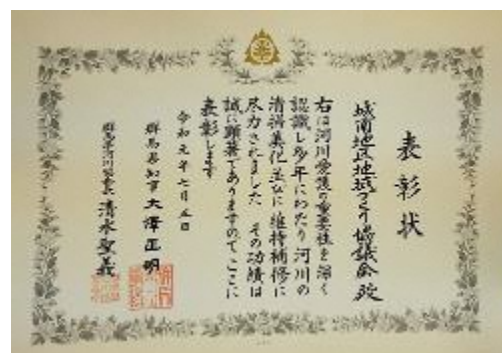 表彰状
城南地区地域づくり協議会 殿
右は河川愛護の重要性を深く
認識し多年にわたり河川の
清掃美化並びに維持補修に
尽力されました その功績は
誠に顕著でありますのでここに
表彰します
令和元年七月五日
群馬県知事 大澤正明
群馬県河川協会長 清水聖義